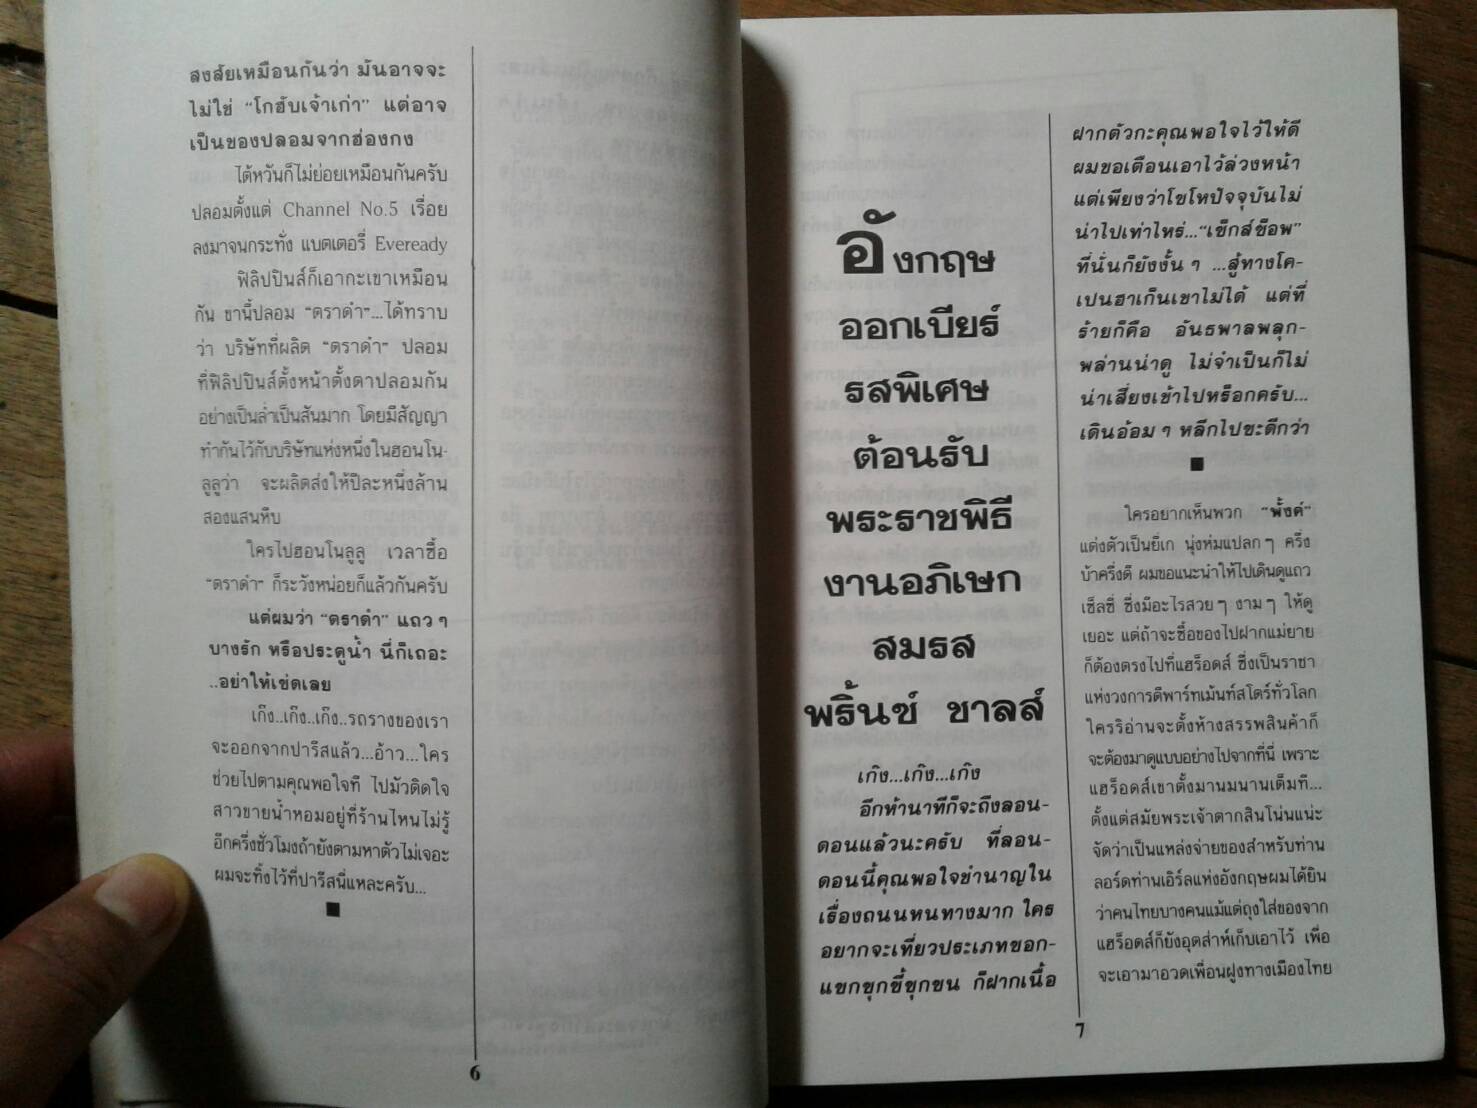 สงสัยเหมือนกันว่า มันอาจจะ
ไม่ใช่ “โกฮับเจ้าเก่า” แต่อาจ
เป็นของปลอมจากฮ่องกง
ไต้หวันก็ไม่ย่อยเหมือนกันครับ
ปลอมตั้งแต่ Channel No.5 เรื่อย
ลงมาจนกระทั่ง แบตเตอรี่ Eveready
ฟิลิปปินส์ก็เอากะเขาเหมือน
กัน ขานี้ปลอม “ตราดำ”...ได้ทราบ
ว่า บริษัทที่ผลิต “ตราดำ” ปลอม
ที่ฟิลิปปินส์ตั้งหน้าตั้งตาปลอมกัน
อย่างเป็นล่ำเป็นสันมาก โดยมีสัญญา
ทำกันไว้กับบริษัทแห่งหนึ่งในฮอนโน-
ลูลูว่า จะผลิตส่งให้ปีละหนึ่งล้าน
สองแสนหีบ
ใครไปฮอนโนลูลู เวลาซื้อ
“ตราดำ” ก็ระวังหน่อยก็แล้วกันครับ
แต่ผมว่า “ตราดำ” แถว ๆ
บางรัก หรือประตูน้ำ นี่ก็เถอะ
..อย่าให้เซ่ดเลย
เก๊ง..เก๊ง..เก๊ง..รถรางของเรา
จะออกจากปารีสแล้ว...อ้าว...ใคร
ช่วยไปตามคุณพอใจที ไปมัวติดใจ
สาวขายน้ำหอมอยู่ที่ร้านไหนไม่รู้
อีกครึ่งชั่วโมงถ้ายังตามหาตัวไม่เจอะ
ผมจะทิ้งไว้ที่ปารีสนี่แหละครับ...
6
อังกฤษ
ออกเบียร์
รสพิเศษ
ต้อนรับ
พระราชพิธี
งานอภิเษก
สมรส
พริ้นซ์ ชาลส์
เก๊ง...เก๊ง...เก๊ง
อีกห้านาทีก็จะถึงลอน-
ดอนแล้วนะครับ ที่ลอน-
ดอนนี้คุณพอใจชำนาญใน
เรื่องถนนหนทางมาก ใคร
อยากจะเที่ยวประเภทซอก-
แซกซุกซี้ซุกซน ก็ฝากเนื้อ
ฝากตัวกะคุณพอใจไว้ให้ดี
ผมขอเตือนเอาไว้ล่วงหน้า
แต่เพียงว่าโซโหปัจจุบันไม่
น่าไปเท่าไหร่...“เซ็กส์ช็อพ”
ที่นั่นก็ยังงั้น ๆ ...สู้ทางโค-
เปนฮาเก็นเขาไม่ได้ แต่ที่
ร้ายก็คือ อันธพาลพลุก-
พล่านน่าดู ไม่จำเป็นก็ไม่
น่าเสี่ยงเข้าไปหร็อกครับ...
เดินอ้อม ๆ หลีกไปซะดีกว่า
ใครอยากเห็นพวก “พั้งค์”
แต่งตัวเป็นยี่เก นุ่งห่มแปลก ๆ ครึ่ง
บ้าครึ่งดี ผมขอแนะนำให้ไปเดินดูแถว
เช็ลซี่ ซึ่งมีอะไรสวย ๆ งาม ๆ ให้ดู
เยอะ แต่ถ้าจะซื้อของไปฝากแม่ยาย
ก็ต้องตรงไปที่แฮร็อดส์ ซึ่งเป็นราชา
แห่งวงการดีพาร์ทเม้นท์สโตร์ทั่วโลก
ใครริอ่านจะตั้งห้างสรรพสินค้าก็
จะต้องมาดูแบบอย่างไปจากที่นี่ เพราะ
แฮร็อดส์เขาตั้งมานมนานเต็มที...
ตั้งแต่สมัยพระเจ้าตากสินโน่นแน่ะ
จัดว่าเป็นแหล่งจ่ายของสำหรับท่าน
ลอร์ดท่านเอิร์ลแห่งอังกฤษผมได้ยิน
ว่าคนไทยบางคนแม้แต่ถุงใส่ของจาก
แฮร็อดส์ก็ยังอุตส่าห์เก็บเอาไว้ เพื่อ
จะเอามาอวดเพื่อนฝูงทางเมืองไทย
7